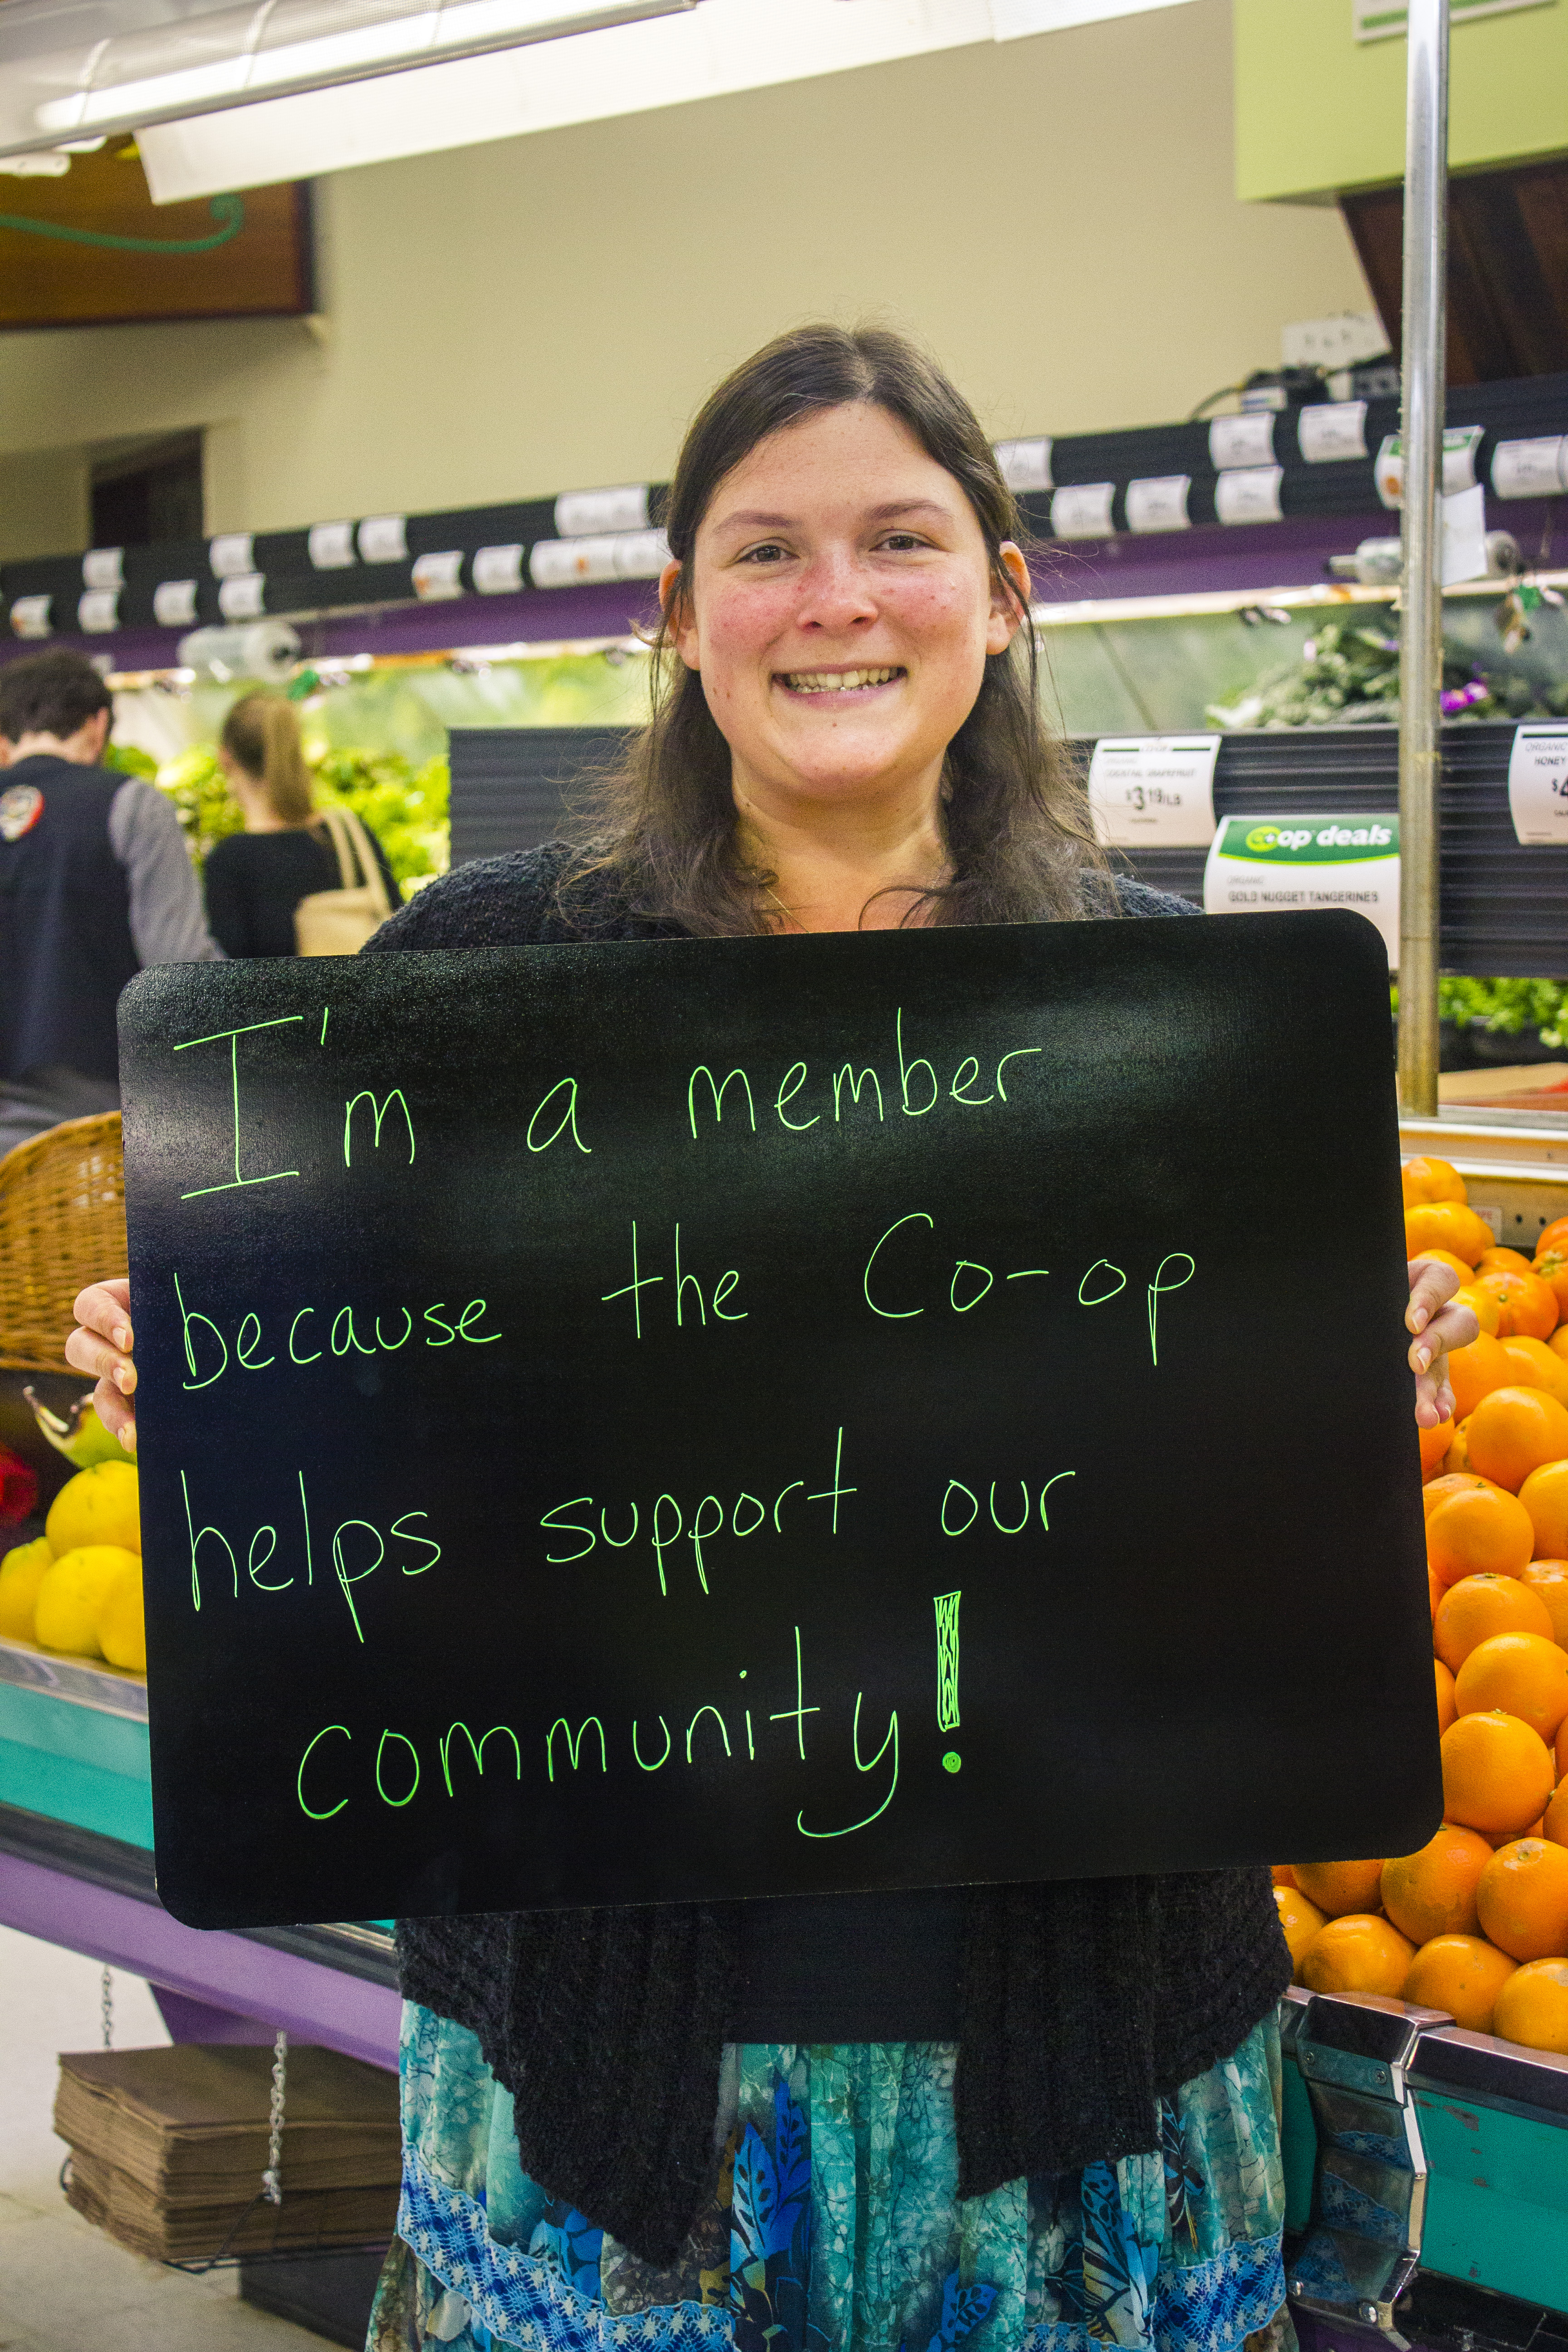 ORGANIC
COCKTAIL GRAPEFRUIT
$3.19/LB
ORGANIC
HONEY
$4
co+op deals
ORGANIC
GOLD NUGGET TANGERINES
I'm a member
because the Co-op
helps support our
community!